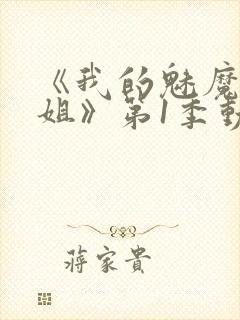 《我的魅魔
姐》第1季動
蔣家貴